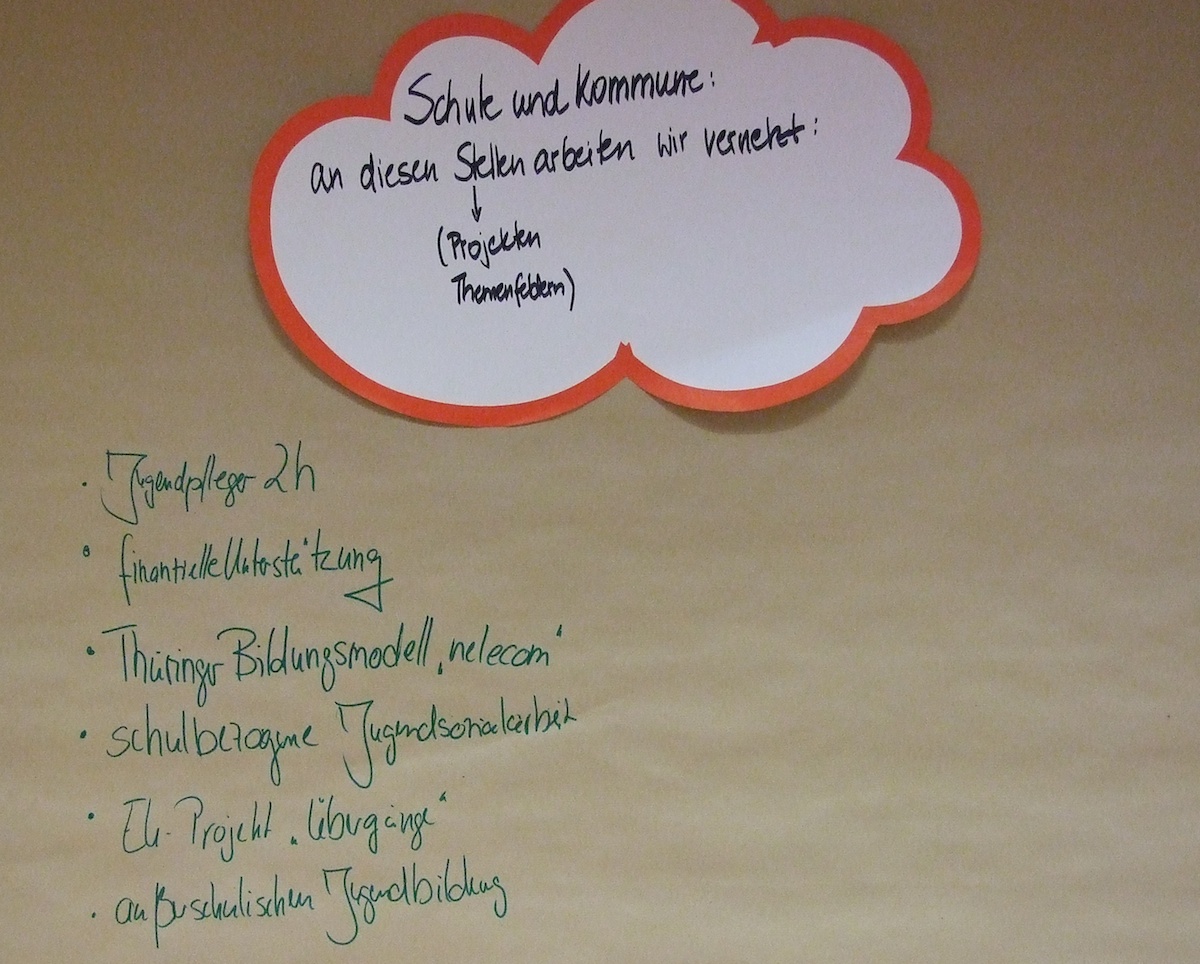 Schule und Kommune:
an diesen Stellen arbeiten wir vernetzt:
↓
(Projekten
Themenfeldern)
· Jugendpfleger 2h
· finantielle Unterstützung
· Thüringer Bildungsmodell „nelecom“
· schulbezogene Jugendsozialarbeit
· EU-Projekt „Übergänge“
· außerschulischen Jugendbildung